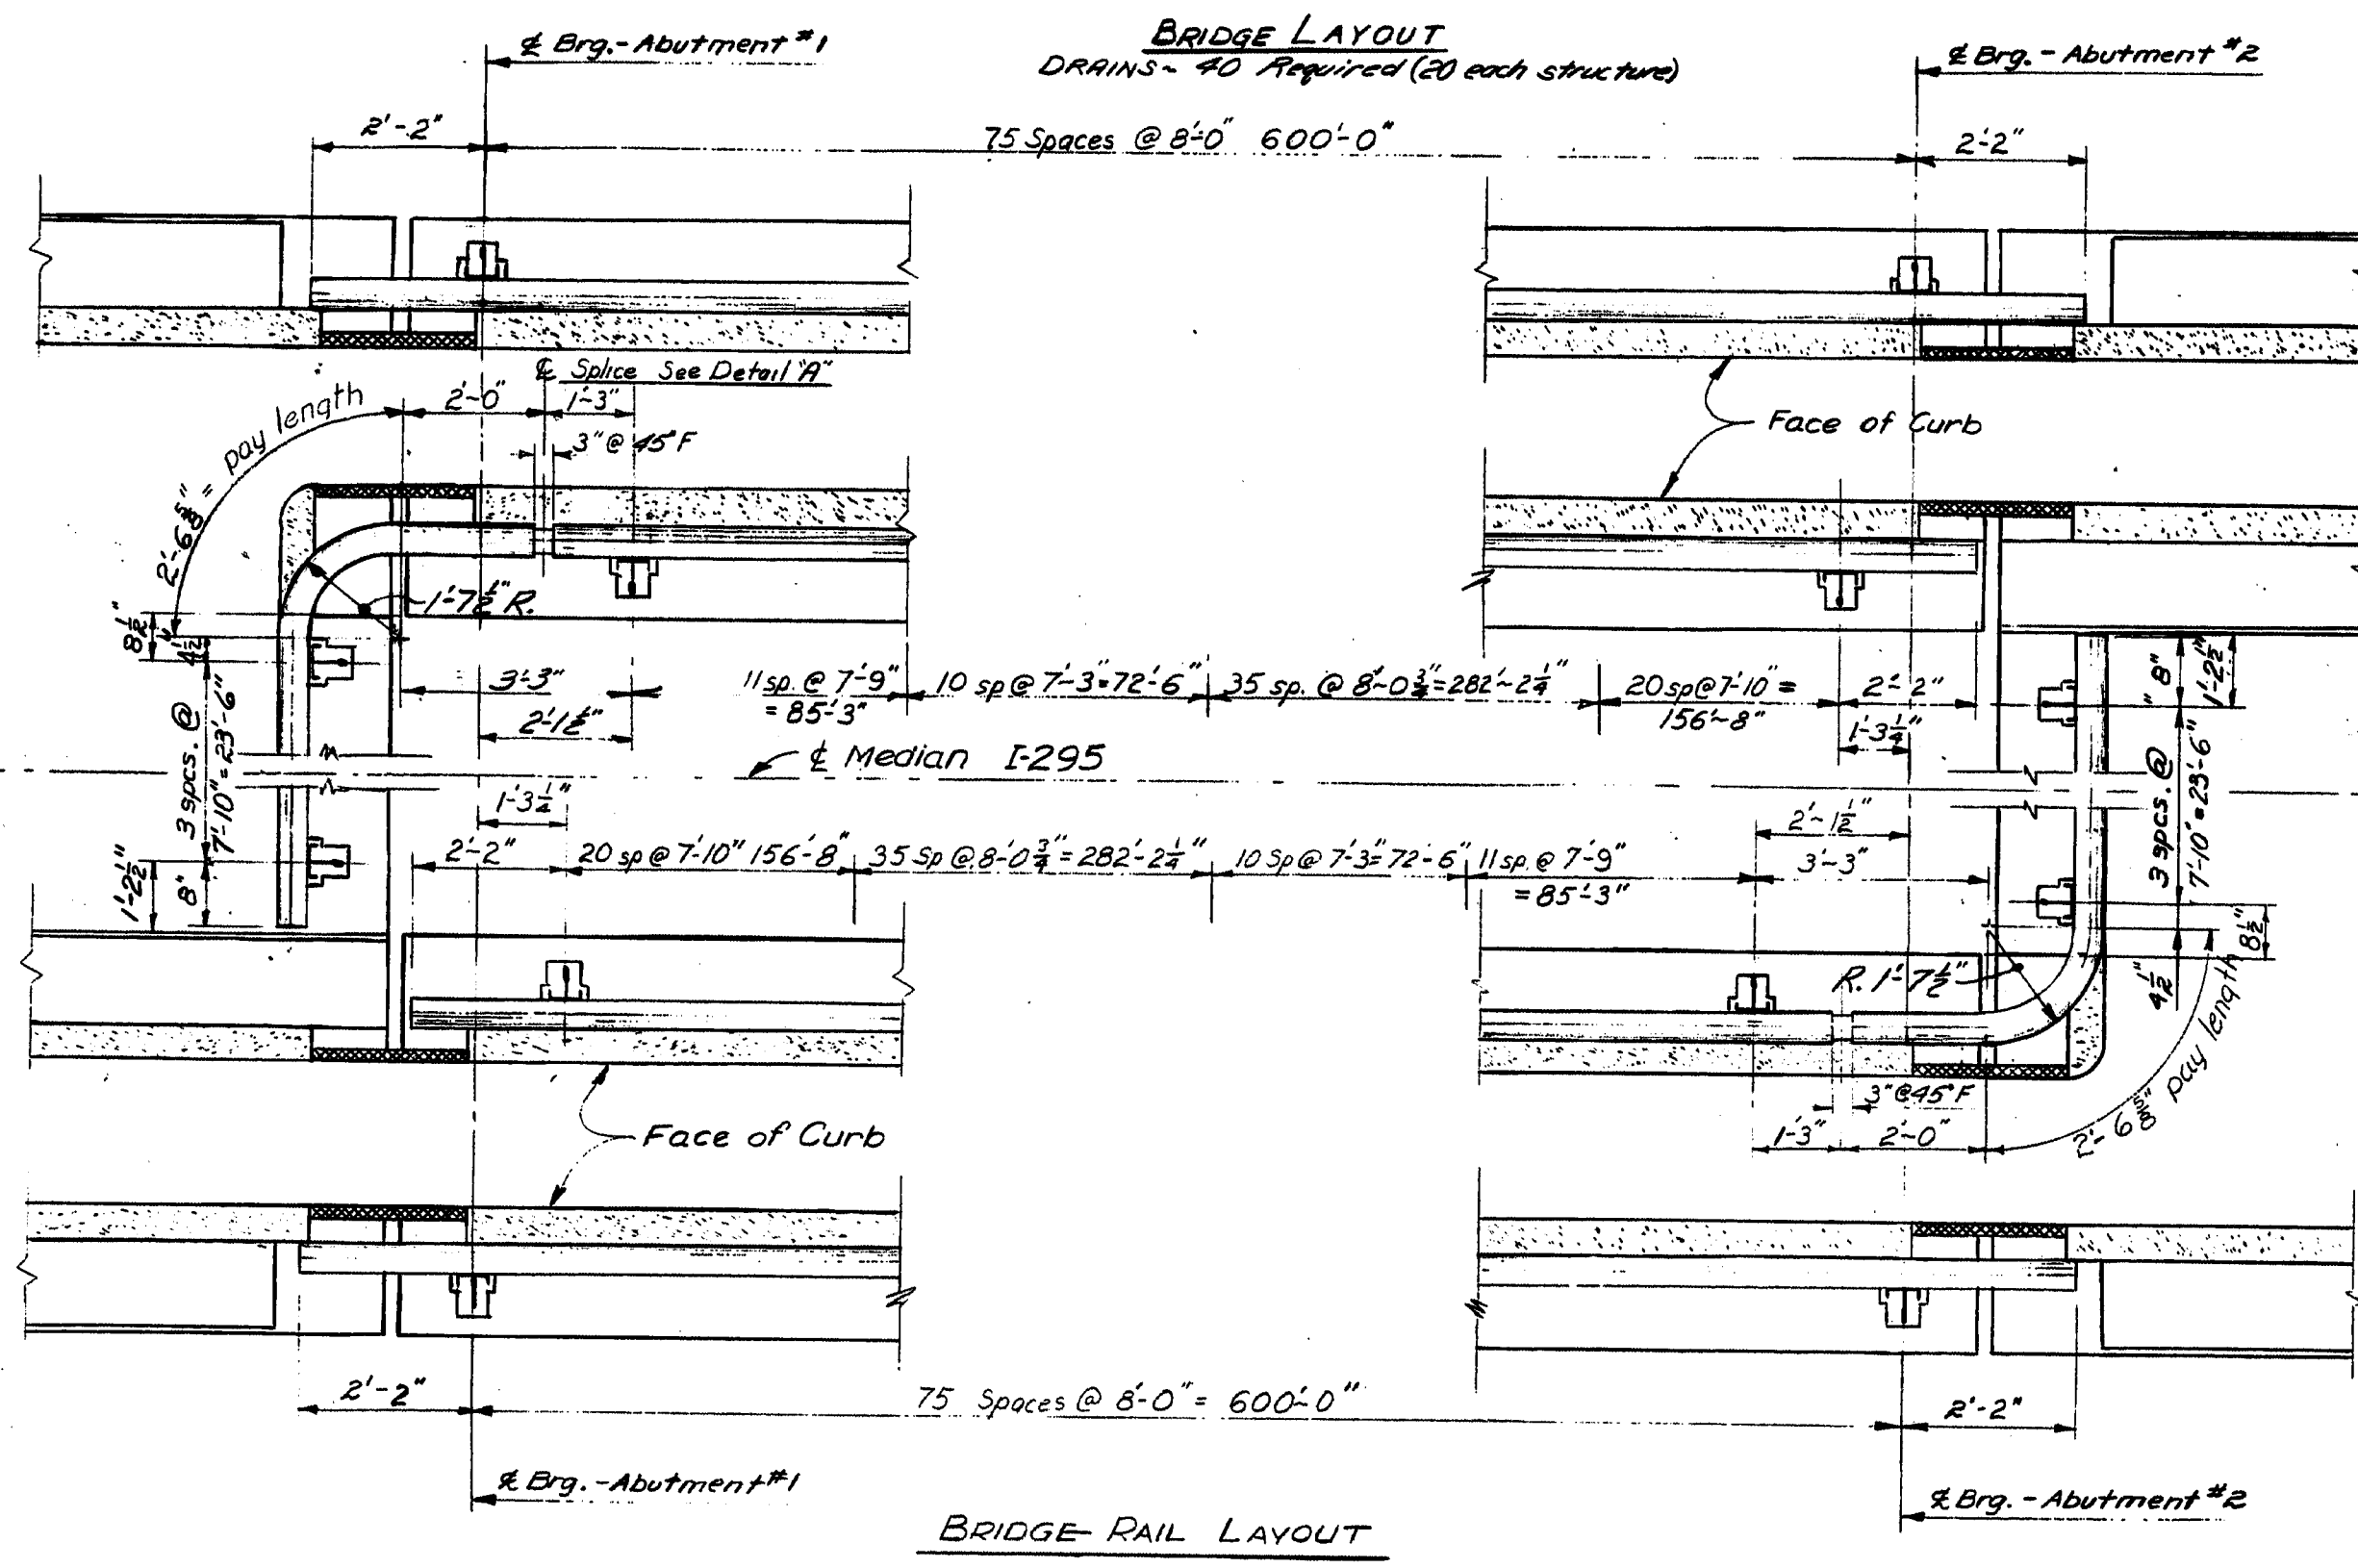 BRIDGE LAYOUT
DRAINS ~ 40 Required (20 each structure)
℄ Brg. - Abutment #1
℄ Brg. - Abutment #2
2'-2"
75 Spaces @ 8'-0" 600'-0"
2'-2"
℄ Splice See Detail "A"
2'-0"
1'-3"
3" @ 45°F
2'-6 5/8" = pay length
Face of Curb
1'-7 1/2" R.
8 1/2"
4 1/2"
3 spcs. @
7'-10" = 23'-6"
3'-3"
2'-1 1/2"
11 sp. @ 7'-9"
= 85'-3"
10 sp @ 7'-3" = 72'-6"
35 sp. @ 8'-0 3/4" = 282'-2 1/4"
20 sp @ 7'-10" =
156'-8"
2'-2"
1'-3 1/4"
8"
1'-2 1/2"
℄ Median I-295
1'-3 1/4"
2'-2"
20 sp @ 7'-10" 156'-8"
35 Sp @ 8'-0 3/4" = 282'-2 1/4"
10 Sp @ 7'-3" = 72'-6"
11 sp. @ 7'-9"
= 85'-3"
2'-1 1/2"
3'-3"
3 spcs. @
7'-10" = 23'-6"
1'-2 1/2"
8"
8 1/2"
4 1/2"
R. 1'-7 1/2"
2'-6 5/8" pay length
3" @ 45°F
1'-3"
2'-0"
Face of Curb
2'-2"
75 Spaces @ 8'-0" = 600'-0"
2'-2"
℄ Brg. - Abutment #1
℄ Brg. - Abutment #2
BRIDGE RAIL LAYOUT